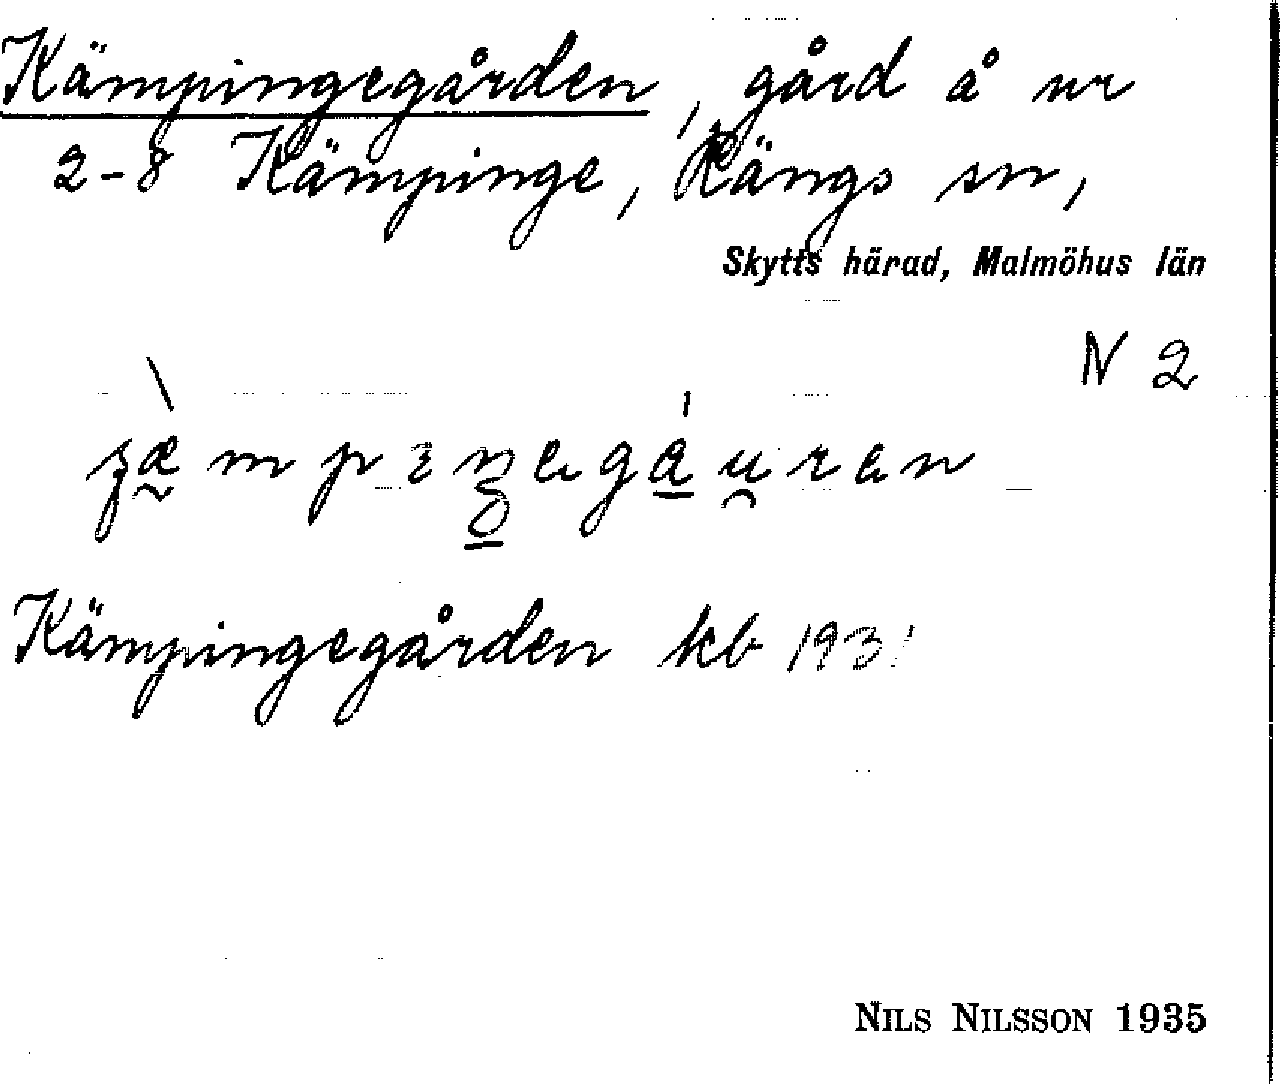 Kämpingegården, gård å nr
2-8 Kämpinge, Rängs sn,
Skytts härad, Malmöhus län
N 2
Kämpingegården kb 1931
NILS NILSSON 1935